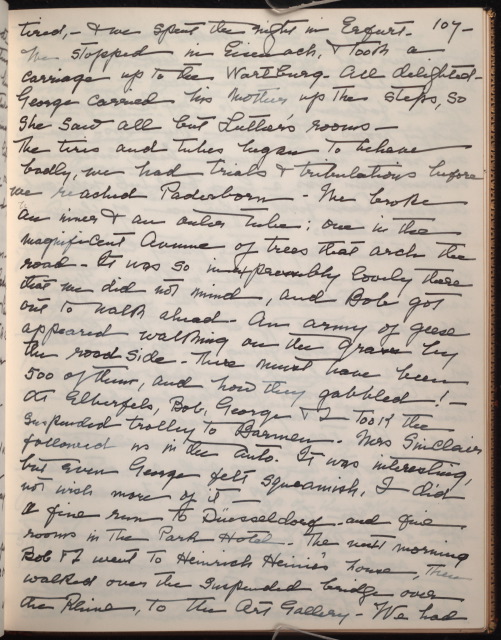 107-
tired, - & we spent the night in Erfurt.
We stopped in Eisenach, & took a
carriage up to the Wartburg. All delighted -
George carried his Mother up the steps, so
She saw all but Luther's rooms -
The tires and tubes began to behave
badly, we had trials & tribulations before
we reached Paderborn - We broke
an inner & an outer tube; one in the
magnificent Avenue of trees that arch the
road - It was so inexpressibly lovely there
that we did not mind, and Bob got
out to walk ahead - An army of geese
appeared walking on the grass by
the road side - There must have been
500 of them, and how they gabbled! -
At Elberfels, Bob, George & I took the
Suspended trolley to Barmen. Mrs Sinclair
followed us in the auto. It was interesting,
but even George felt squeamish, I did
not wish more of it -
A fine run to Düesseldorf and fine
rooms in the Park Hotel. The next morning
Bob & I went to Heinrich Heine's house, then
walked over the Suspended bridge over
the Rhine, to the Art Gallery - We had